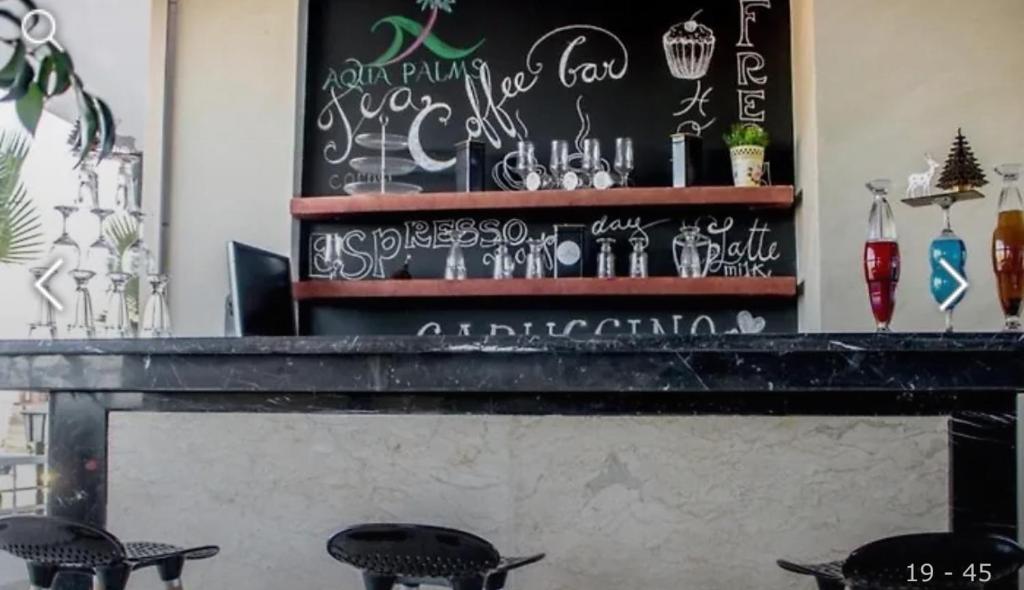 AQUA PALMS
Tea Coffee bar
ESPRESSO
day
Latte
milk
CAPUCCINO
19 - 45